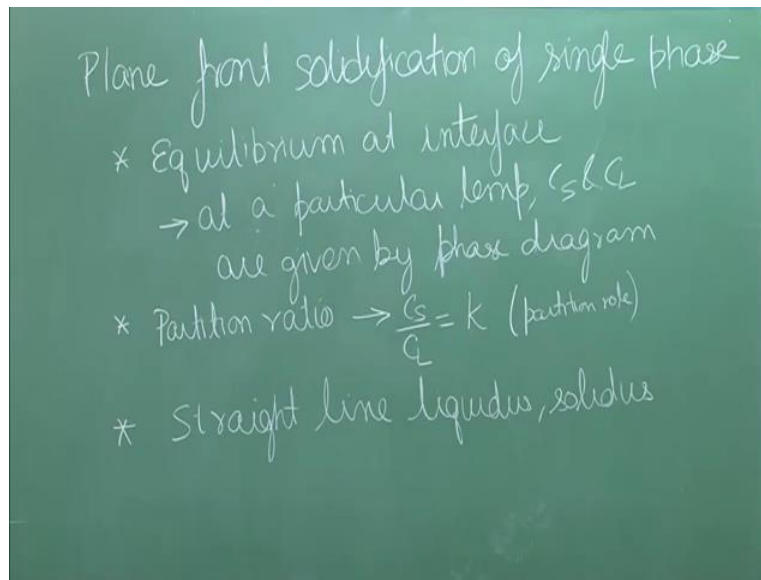 Plane front solidification of single phase
* Equilibrium at interface
→ at a particular temp, Cs & CL
are given by phase diagram
* Partition ratio → Cs/CL = k (partition role)
* Straight line liquidus, solidus